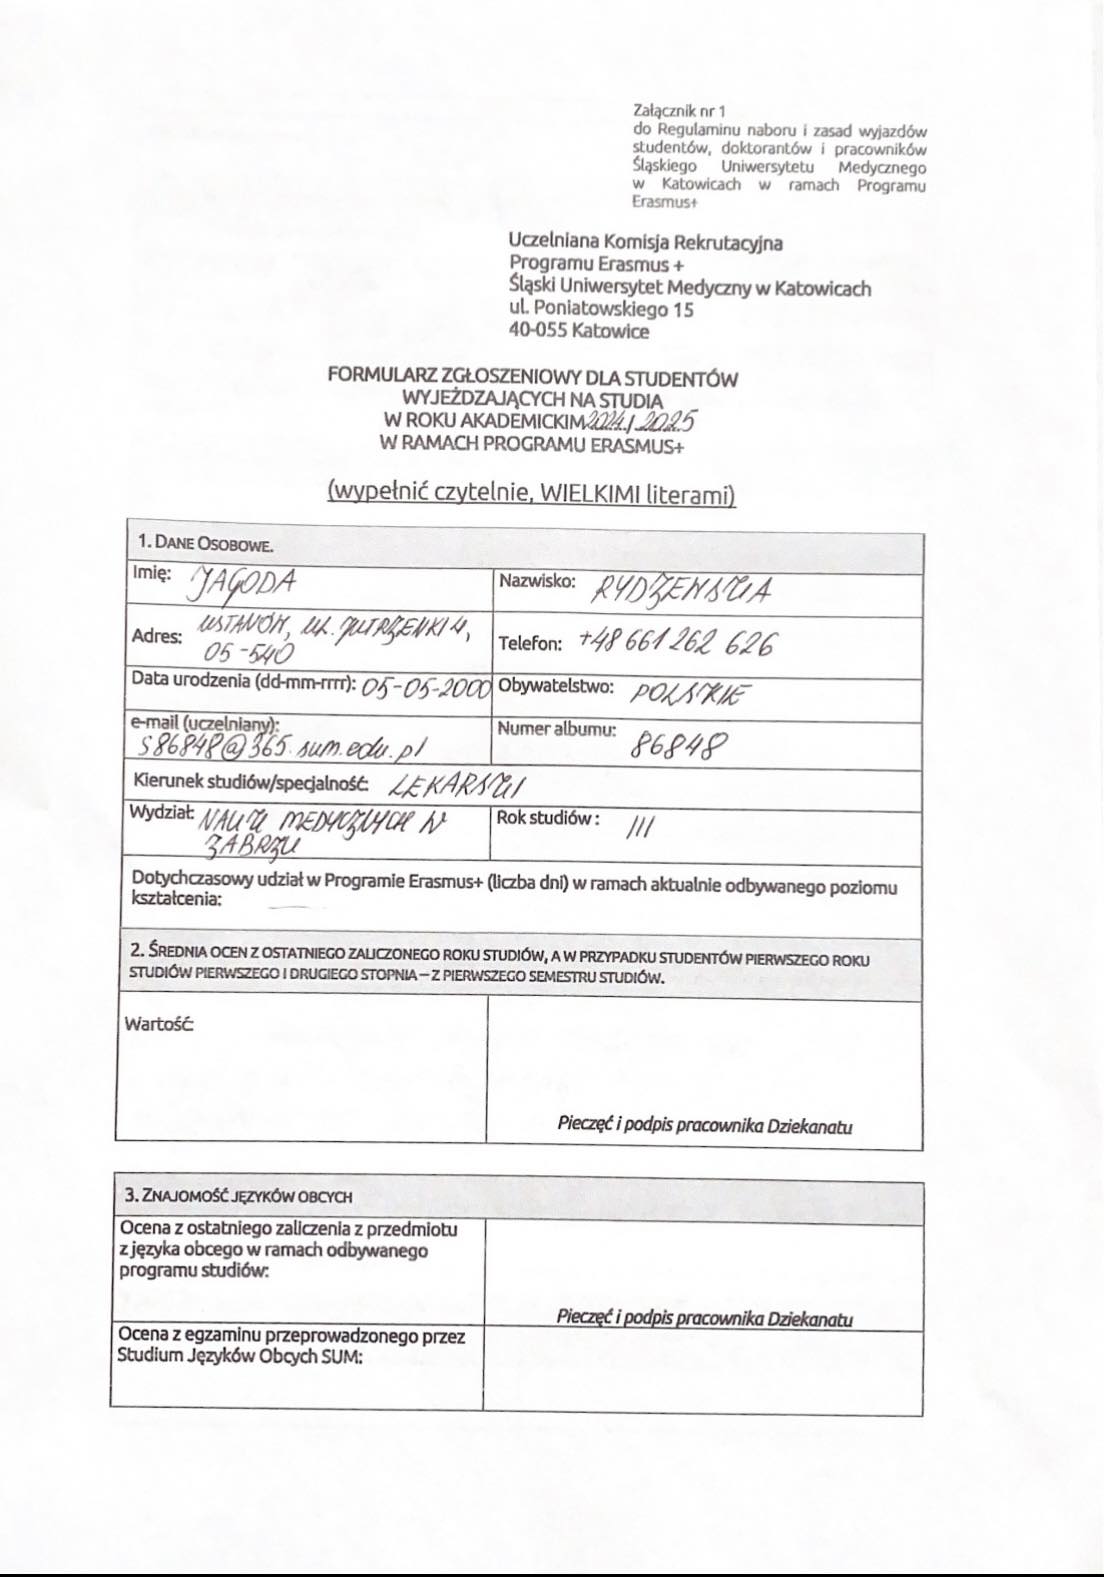 Załącznik nr 1
do Regulaminu naboru i zasad wyjazdów
studentów, doktorantów i pracowników
Śląskiego Uniwersytetu Medycznego
w Katowicach w ramach Programu
Erasmus+
Uczelniana Komisja Rekrutacyjna
Programu Erasmus +
Śląski Uniwersytet Medyczny w Katowicach
ul. Poniatowskiego 15
40-055 Katowice
FORMULARZ ZGŁOSZENIOWY DLA STUDENTÓW
WYJEŻDZAJĄCYCH NA STUDIA
W ROKU AKADEMICKIM 2024/2025
W RAMACH PROGRAMU ERASMUS+
(wypełnić czytelnie, WIELKIMI literami)
1. DANE OSOBOWE.
Imię: JAGODA
Nazwisko: RYDZEWSKA
Adres: USTANÓW, UL. JUTRZENKI 4,
05-540
Telefon: +48 661 262 626
Data urodzenia (dd-mm-rrrr): 05-05-2000
Obywatelstwo: POLSKIE
e-mail (uczelniany):
s86848@365.sum.edu.pl
Numer albumu: 86848
Kierunek studiów/specjalność: LEKARSKI
Wydział: NAUK MEDYCZNYCH W
ZABRZU
Rok studiów : III
Dotychczasowy udział w Programie Erasmus+ (liczba dni) w ramach aktualnie odbywanego poziomu
kształcenia:
2. ŚREDNIA OCEN Z OSTATNIEGO ZALICZONEGO ROKU STUDIÓW, A W PRZYPADKU STUDENTÓW PIERWSZEGO ROKU
STUDIÓW PIERWSZEGO I DRUGIEGO STOPNIA – Z PIERWSZEGO SEMESTRU STUDIÓW.
Wartość:
Pieczęć i podpis pracownika Dziekanatu
3. ZNAJOMOŚĆ JĘZYKÓW OBCYCH
Ocena z ostatniego zaliczenia z przedmiotu
z języka obcego w ramach odbywanego
programu studiów:
Pieczęć i podpis pracownika Dziekanatu
Ocena z egzaminu przeprowadzonego przez
Studium Języków Obcych SUM: